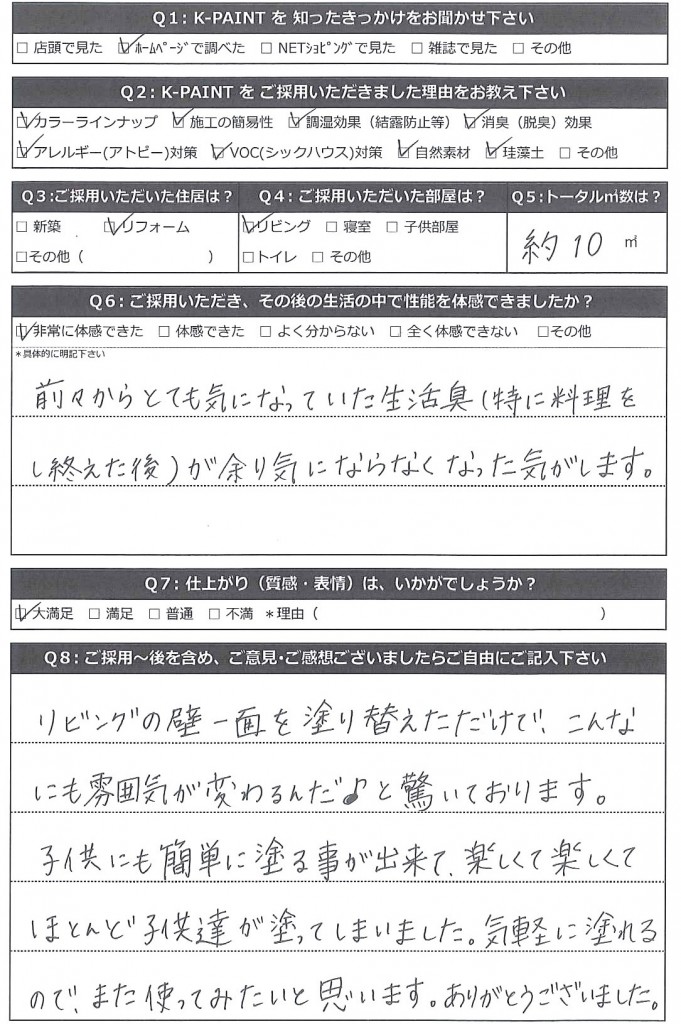 Q1：K-PAINT を 知ったきっかけをお聞かせ下さい
□ 店頭で見た ☑ ﾎｰﾑﾍﾟｰｼﾞで調べた □ NETｼｮﾋﾟﾝｸﾞで見た □ 雑誌で見た □ その他
Q2：K-PAINT を ご採用いただきました理由をお教え下さい
☑ カラーラインナップ ☑ 施工の簡易性 ☑ 調湿効果（結露防止等） ☑ 消臭（脱臭）効果
☑ アレルギー(アトピー)対策 ☑ VOC(シックハウス)対策 ☑ 自然素材 ☑ 珪藻土 □ その他
Q3：ご採用いただいた住居は？
□ 新築 ☑ リフォーム
□その他（ ）
Q4：ご採用いただいた部屋は？
☑ リビング □ 寝室 □ 子供部屋
□トイレ □ その他
Q5：トータル㎡数は？
約 10 ㎡
Q6：ご採用いただき、その後の生活の中で性能を体感できましたか？
☑ 非常に体感できた □ 体感できた □ よく分からない □ 全く体感できない □その他
＊具体的に明記下さい
前々からとても気になっていた生活臭(特に料理を
し終えた後)が余り気にならなくなった気がします。
Q7：仕上がり（質感・表情）は、いかがでしょうか？
☑ 大満足 □ 満足 □ 普通 □ 不満 ＊理由（ ）
Q8：ご採用～後を含め、ご意見･ご感想ございましたらご自由にご記入下さい
リビングの壁一面を塗り替えただけで、こんな
にも雰囲気が変わるんだ♪と驚いております。
子供にも簡単に塗る事が出来て、楽しくて楽しくて
ほとんど子供達が塗ってしまいました。気軽に塗れる
ので、また使ってみたいと思います。ありがとうございました。